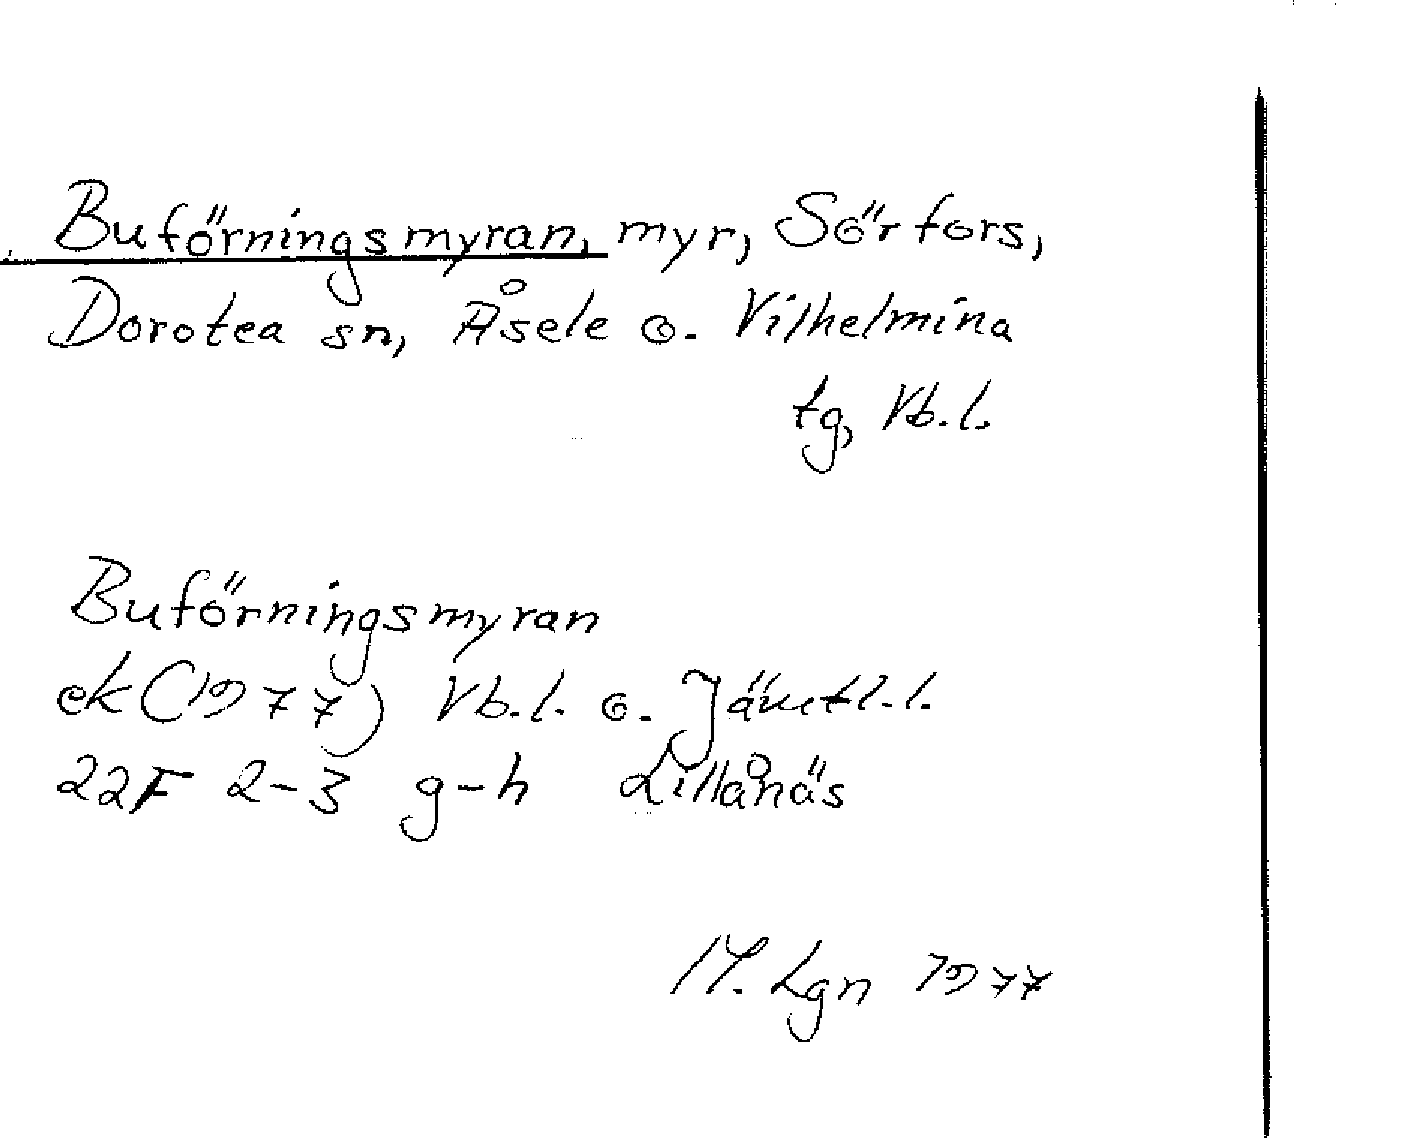 Buförningsmyran, myr, Sörfors,
Dorotea sn, Åsele o. Vilhelmina
tg, Vb.l.
Buförningsmyran
ek (1977) Vb.l. o. Jämtl.l.
22F 2-3 g-h Lillånäs
Lgn 1977